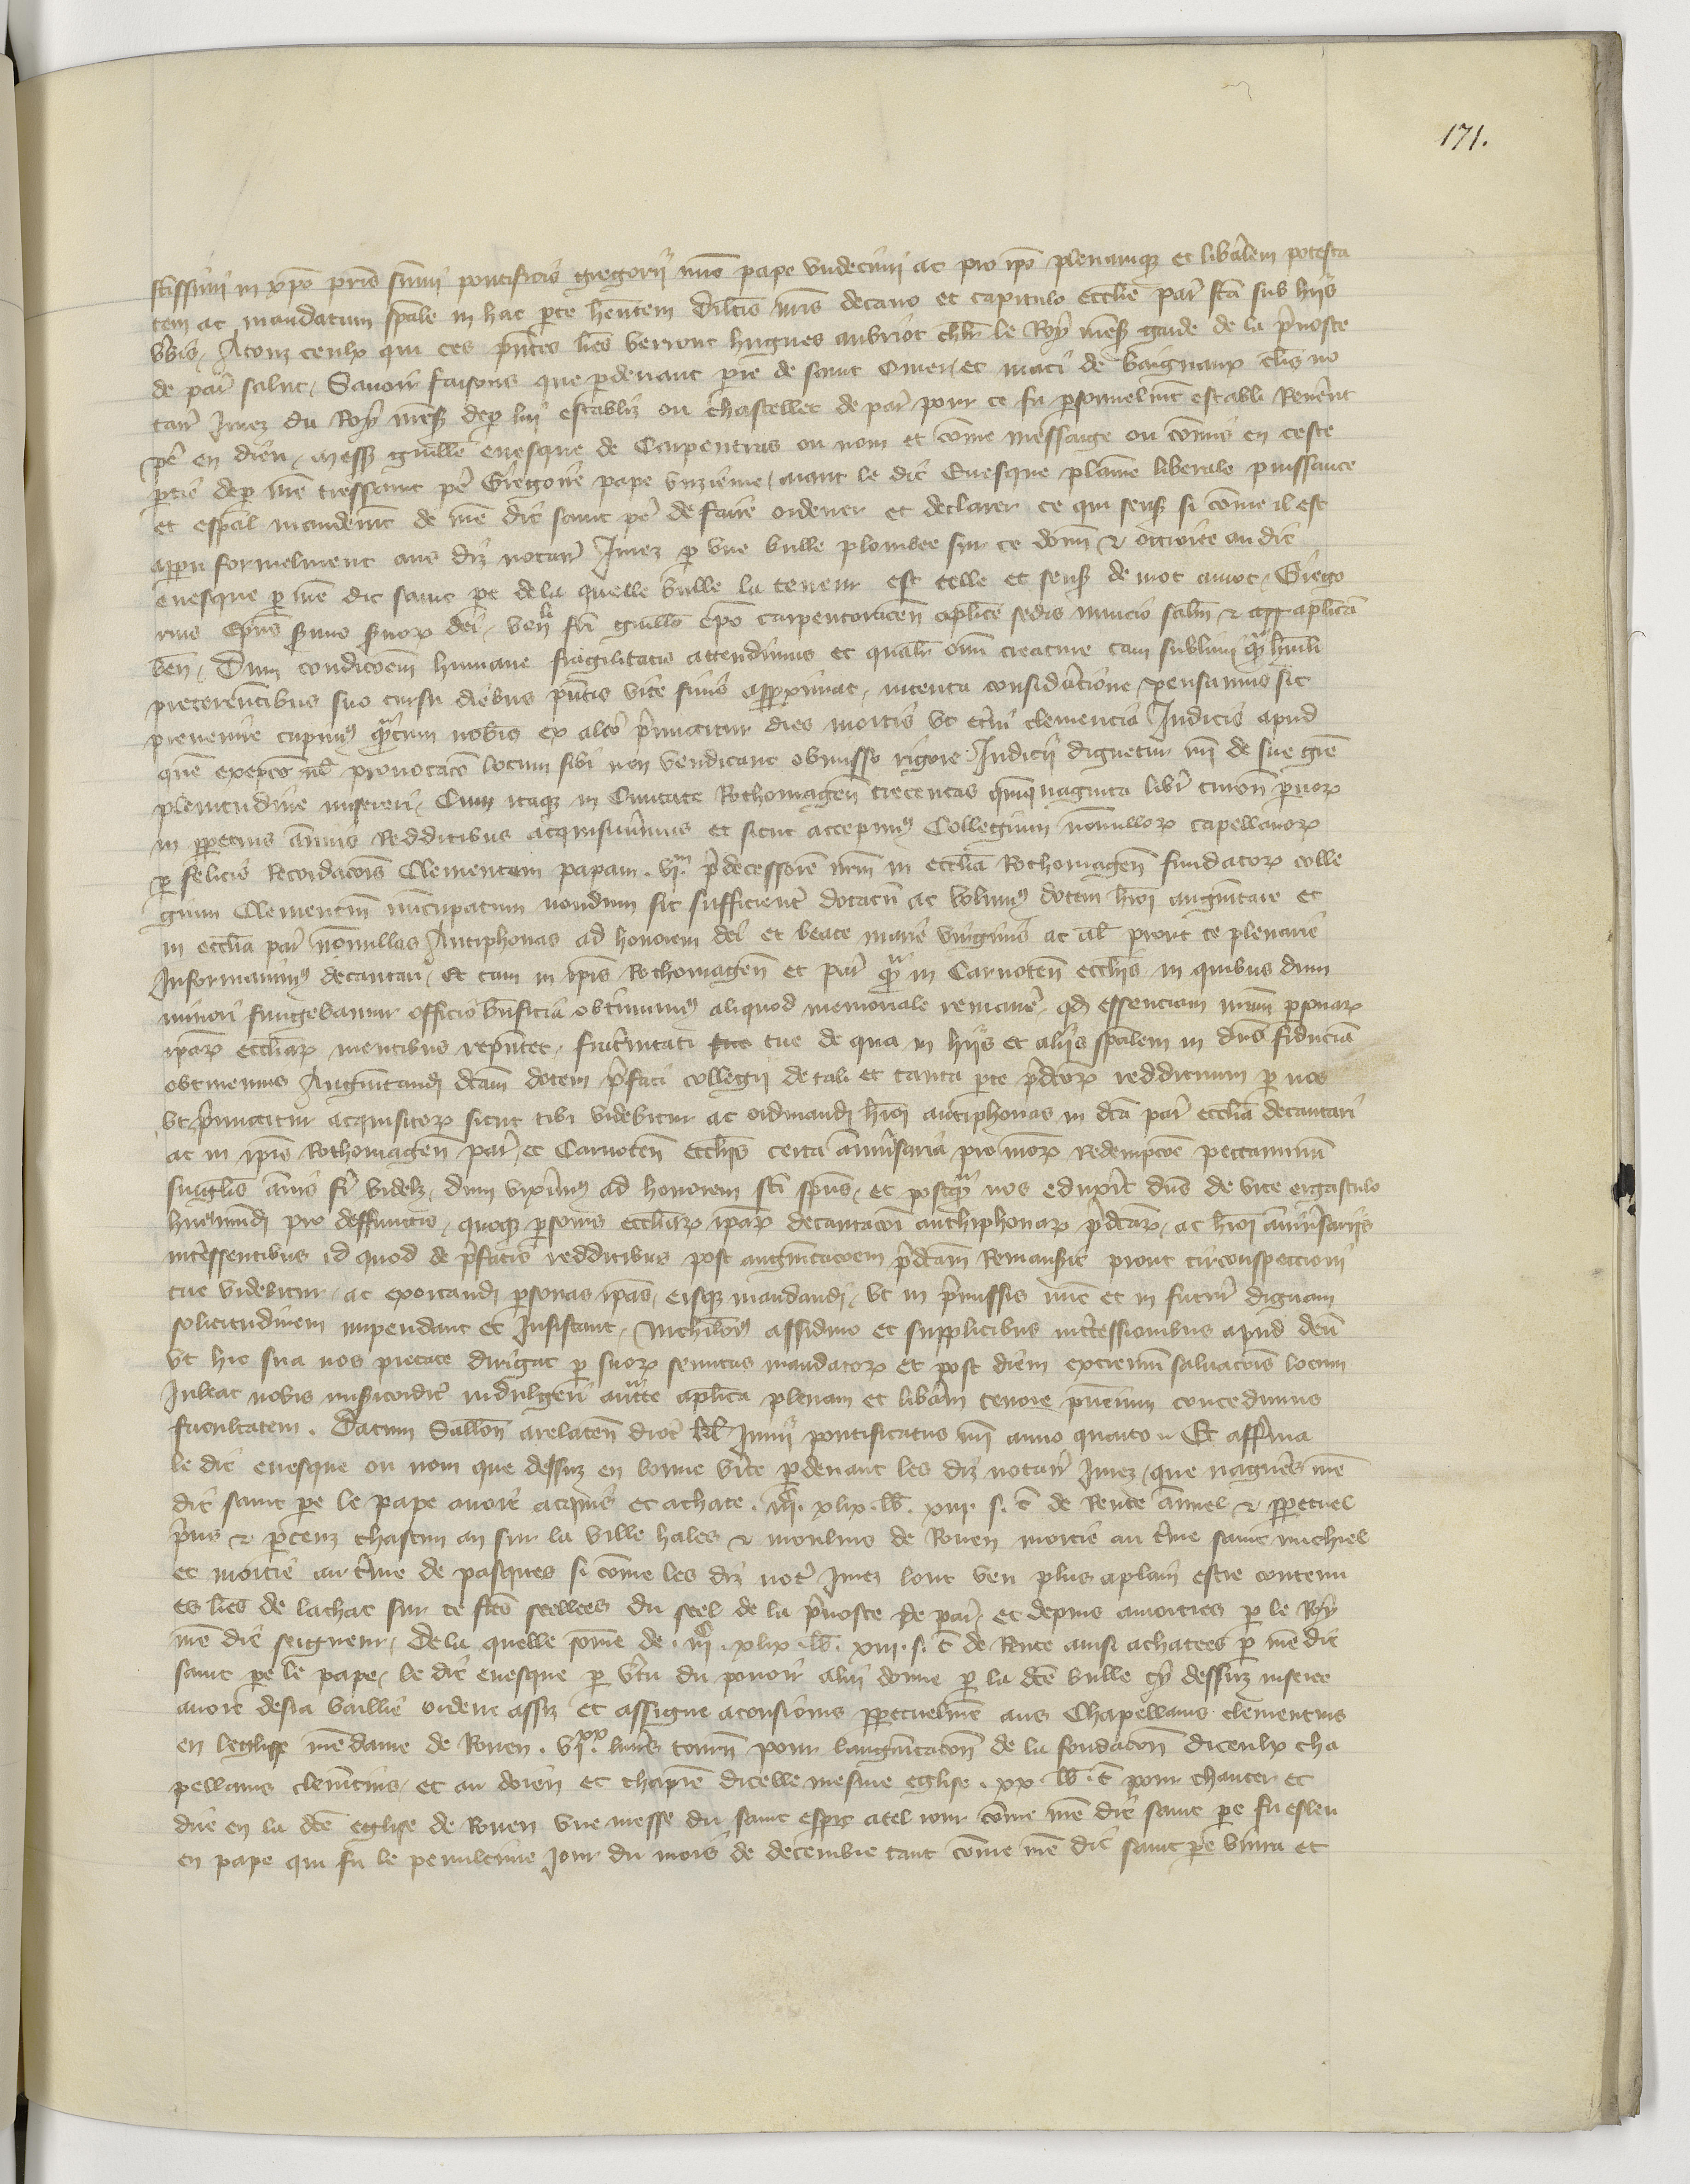 171.
stissimi in xpo pris summi pontificis gregorii nunc pape undecimi ac pro ipo plenamque et liberalem potesta
tem ac mandatum spale in hac parte hentem Dilcis nris decano et capitulo ecclie par sta sub hiis
vbis, Atouz ceulx qui ces pntes lres verront hugues aubriot chlr le Roy nres garde de la prevoste
de par salut, Savoir faisons que pardevant pre de saint Omer, et maci de baigneaux clers no
tar Jurez du Roy nres depar luy establiz ou Chastellet de par pour ce fu personnelmt establi Reverent
pe en dieu, mess guille evesque de Carpentras ou nom et comme messaige ou commis en ceste
partie depar nre tressaint pe Gregoire pape unzieme, aiant le dit Evesque plaine liberale puissance
et espcial mandemt de nre dit saint pe de faire ordener et declarer ce qui sens si comme il est
apparu formelment aus diz notar Jurez par une bulle plombee sur ce donn & ottroiee au dit
evesque par nre dit saint pe de la quelle bulle la teneur est telle et sens de mot amot, Grego
rius Eps servus servor dei, venli fri guillo epo carpentoracen aplice sedis nuncio saltm & aplicam
ben, Dum condicoem humane fragilitatis attendimus et qualr omi creature tam sublimi quam humili
pretereuntibus suo cursu diebus pntis vite finis approximat, intenta consideracione pensamus sic
prevenire cupimus quantum nobis ex alto permittitur dies mortis ut eterni clemencia Judicis apud
quem excepco vel provocaco locum sibi non vendicant obmisso rigore Judicii dignetur nri de sue gre
plenitudine misereri, Cum itaque in Civitate Rothomagen trecentas quinquaginta libr turon parvor
in perpetuis annuis Redditibus acquisiverimus et sicut accepimus Collegium nonnullor capellanor
per felicis Recordacois Clementem papam . vjm. predecessorem nrm in ecclia Rothomagen fundator colle
gium Clementinum nuncupatum nondum sit sufficienter dotatum ac volumus dotem huoi augmentare et
in ecclia par nonnullas Antiphonas ad honorem dei et beate marie virginis ac al prout te plenarie
Informavimus decantari, Et tam in ipis Rothomagen et par quam in Carnoten eccliis in quibus dum
minori fungebamur officio bnficia obtinuimus aliquod memoriale remanere, qd essenciam nram personar
ipar eccliar mentibus representet, fraternitati tue de qua in hiis et aliis spalem in dno fiduciam
obtinemus Augmentandi dcam dotem prefati collegii de tali et tanta parte predcor reddituum per nos
ut premittitur acquisitor sicut tibi videbitur ac ordinandi huoi antiphonas in dca par ecclia decantari
ac in ipis Rothomagen par et Carnoten eccliis certa anniversaria pro nror Redempcoe peccaminum
singulis annis fieri videlz, dum vixerimus ad honorem sci spus, et postquam nos eduxerit dns de vite ergastulo
huiusmodi pro deffunctis, quoque personis eccliar ipar decantacoi anthiphonar predcar, ac huoi anniversariis
interessentibus id quod de prefatis redditibus post augmentacoem predcam Remanserit prout circonspectioni
tue videbitur, ac exortandi personas ipas, eisque mandandi, ut in premissis nunc et in futur dignam
solicitudinem impendant et Insistant, nichilomin assiduo et supplicibus intercessionibus apud deum
ut hic sua nos pietate dirigat per suor semitas mandator et post diem extremum salvacois locum
Jubeat nobis misericorditer indulgeri aucte aplica plenam et liberam tenore pncium concedimus
facultatem. Datum Sallon arelaten dioc kl Junii pontificatus nri anno quarto. Et afferma
le dit evesque ou nom que dessuz en bonne verite pardevant les diz notar Jurez, que nagueres nre
dit saint pere le pape avoit acquis et achate . iijc. xlix. lb. xiij. s. t de Rente annuel & perpetuel
prins & percenz chascun an sur la ville hales & moulins de Rouen moitie au terme saint michiel
et moitie au terme de pasques si comme les diz not Jurez lont veu plus aplain estre contenu
es lres de lachat sur ce fces seellees du seel de la prevoste de par, et depuis amorties par le Roy
nre dit seigneur, De la quelle somme de . iijc. xlix. lb. xiij. s. t de Rente ainsi achatees par nre dit
saint pere le pape, le dit evesque par vertu du povoir alui donne par la dce bulle cy dessuz inseree
avoit desia baillie ordene assiz et assigne atousiours perpetuelmt aus Chapellains clementins
en leglise nredame de Rouen . vjxx. livres tourn pour laugmentacon de la fondacon diceulx cha
pellains clementins, et au doien et chapitre dicelle mesme eglise . xx. lb. t pour chanter et
dire en la dce eglise de Rouen une messe du saint esprit atel iour comme nre dit saint pere fu esleu
en pape qui fu le penultime Jour du mois de decembre tant comme nre dit saint pere vivra et